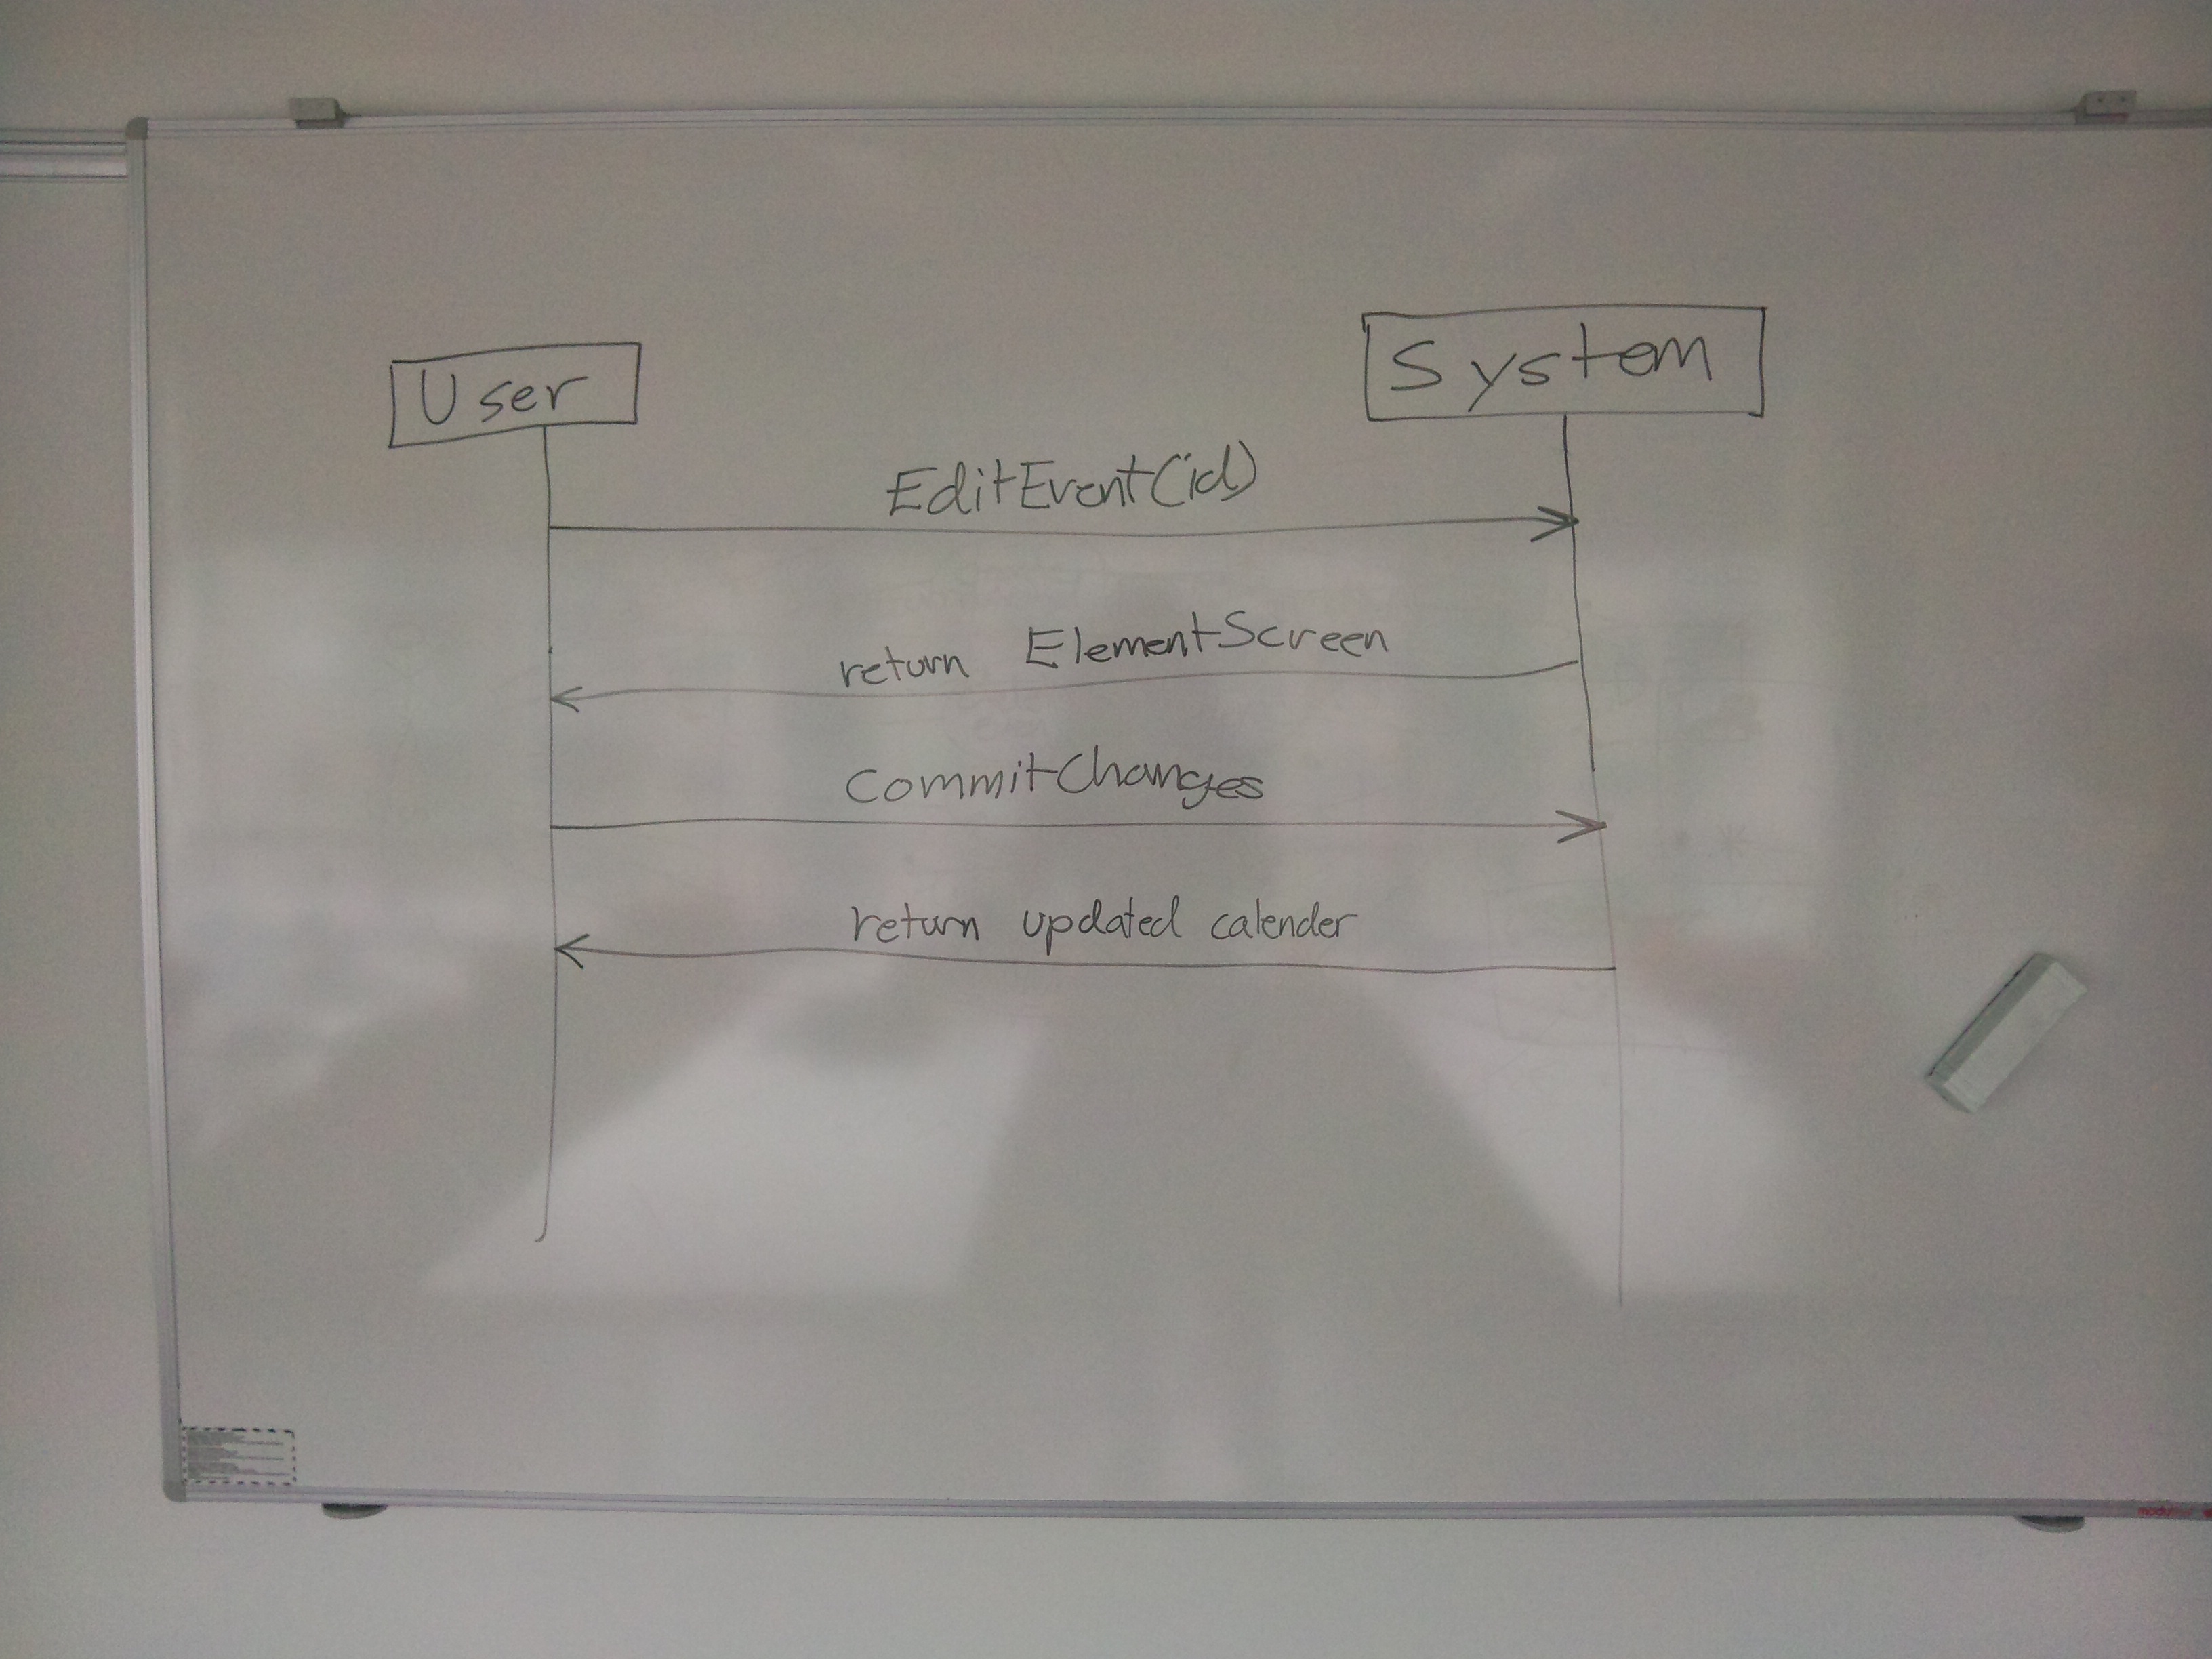 User
System
EditEvent(id)
return ElementScreen
CommitChanges
return updated calender